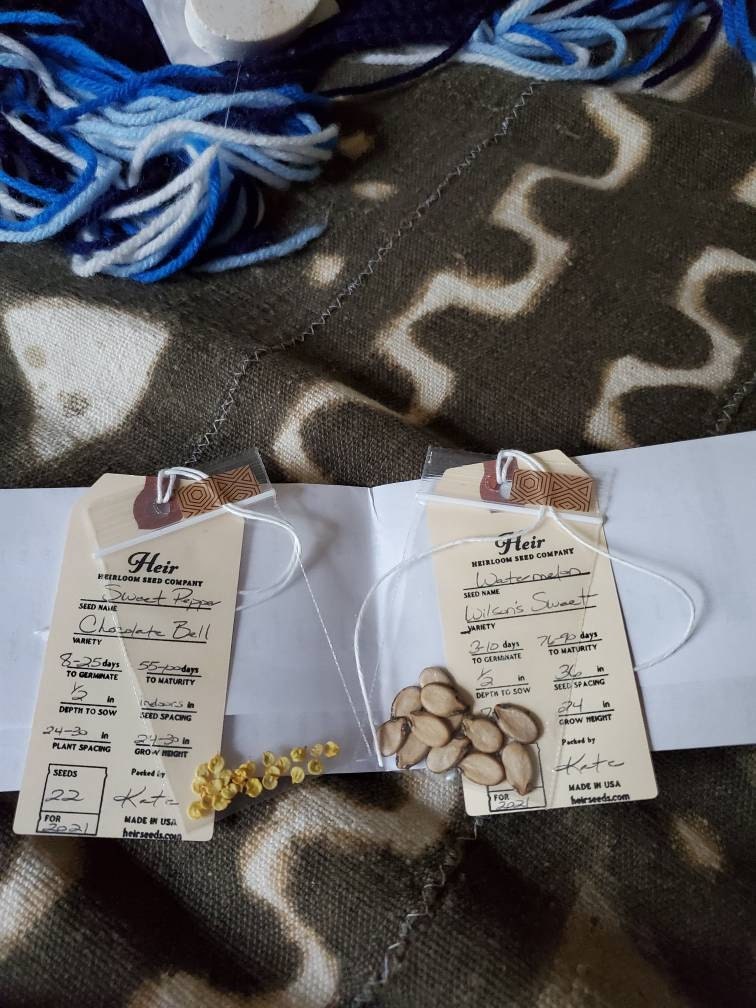 Heir
HEIRLOOM SEED COMPANY
Sweet Pepper
SEED NAME
Chocolate Bell
VARIETY
8-25 days
TO GERMINATE
days
TO MATURITY
1/2 in
DEPTH TO SOW
indoors in
SEED SPACING
24-30 in
PLANT SPACING
24-30 in
GROW HEIGHT
SEEDS
22
FOR
2021
Packed by
Kate
MADE IN USA
heirseeds.com
Heir
HEIRLOOM SEED COMPANY
Watermelon
SEED NAME
Wilson's Sweet
VARIETY
3-10 days
TO GERMINATE
76-90 days
TO MATURITY
1/2 in
DEPTH TO SOW
36 in
SEED SPACING
24 in
GROW HEIGHT
FOR
2021
Packed by
Kate
MADE IN USA
heirseeds.com